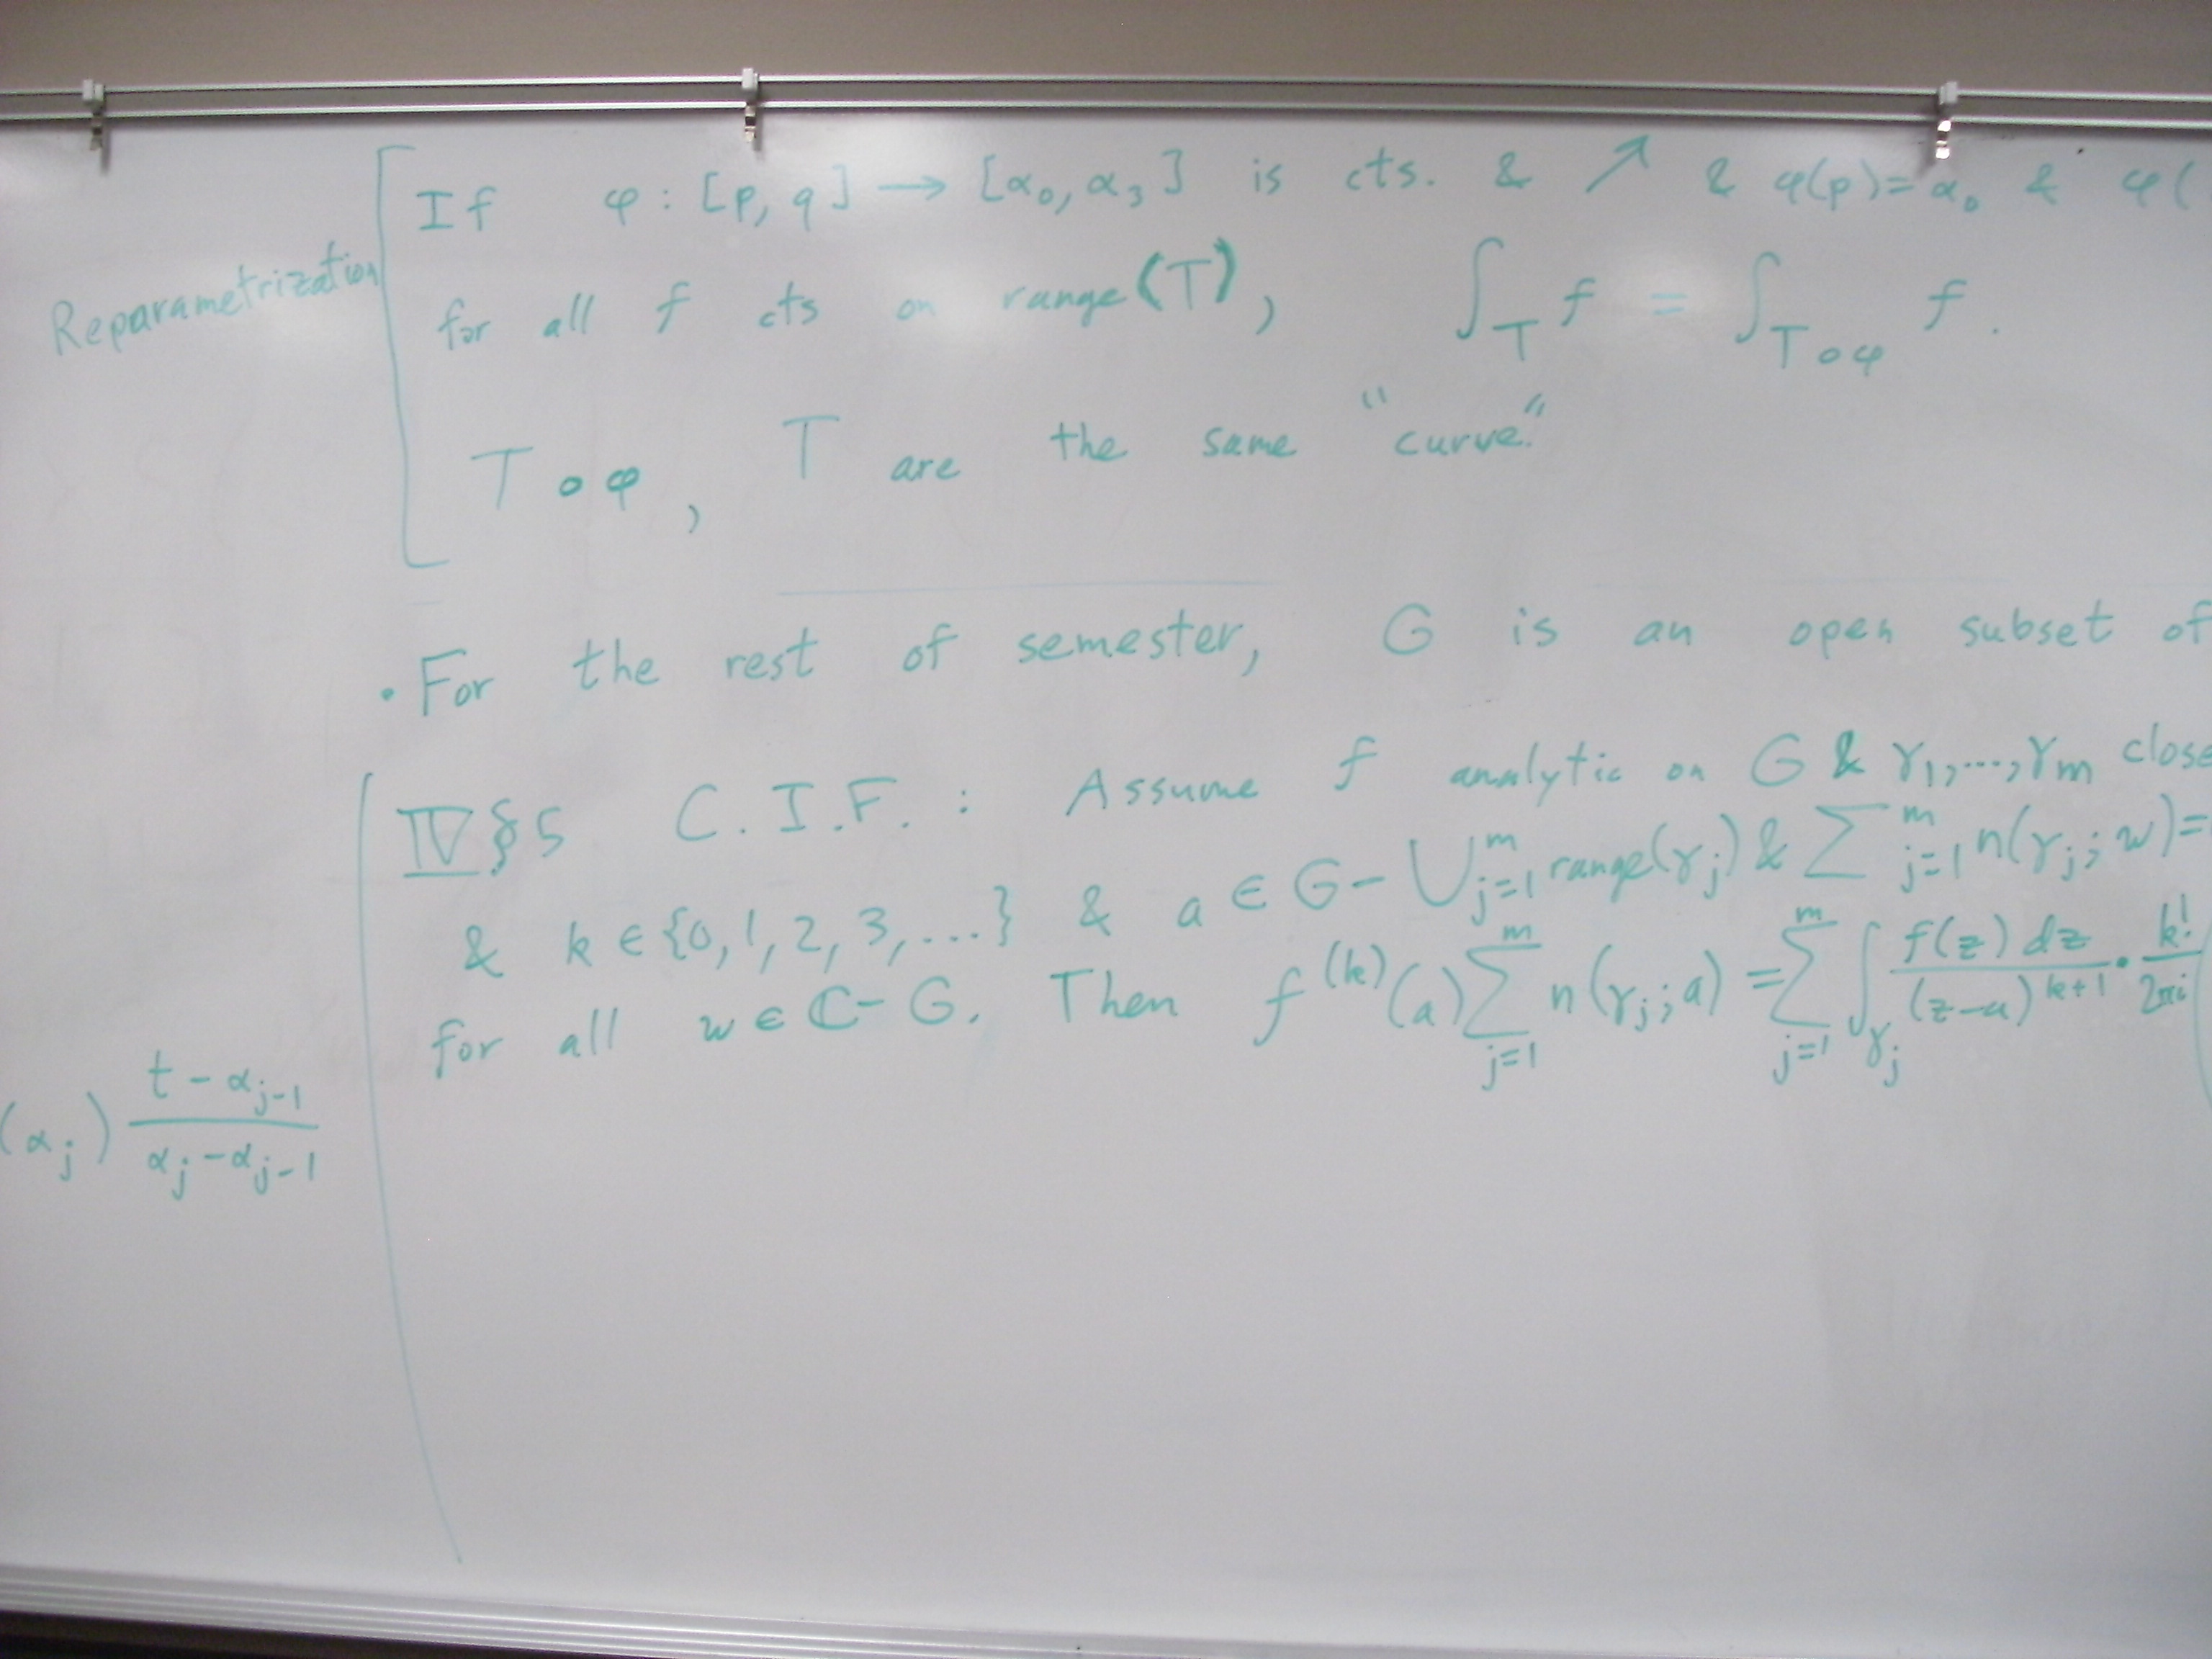 Reparametrization
If φ : [p, q] → [α₀, α₃] is cts. & ↗ & φ(p) = α₀ & φ(
for all f cts on range(T), ∫_T f = ∫_{T∘φ} f.
T∘φ, T are the same "curve."
• For the rest of semester, G is an open subset of
IV §5 C.I.F. : Assume f analytic on G & γ₁,...,γₘ close
& k ∈ {0, 1, 2, 3, ...} & a ∈ G − ⋃_{j=1}^m range(γⱼ) & ∑_{j=1}^m n(γⱼ; w) =
for all w ∈ ℂ − G. Then f^{(k)}(a) ∑_{j=1}^m n(γⱼ; a) = ∑_{j=1}^m ∫_{γⱼ} f(z) dz / (z−a)^{k+1} · k!/2πi
(αⱼ) (t − α_{j−1}) / (αⱼ − α_{j−1})